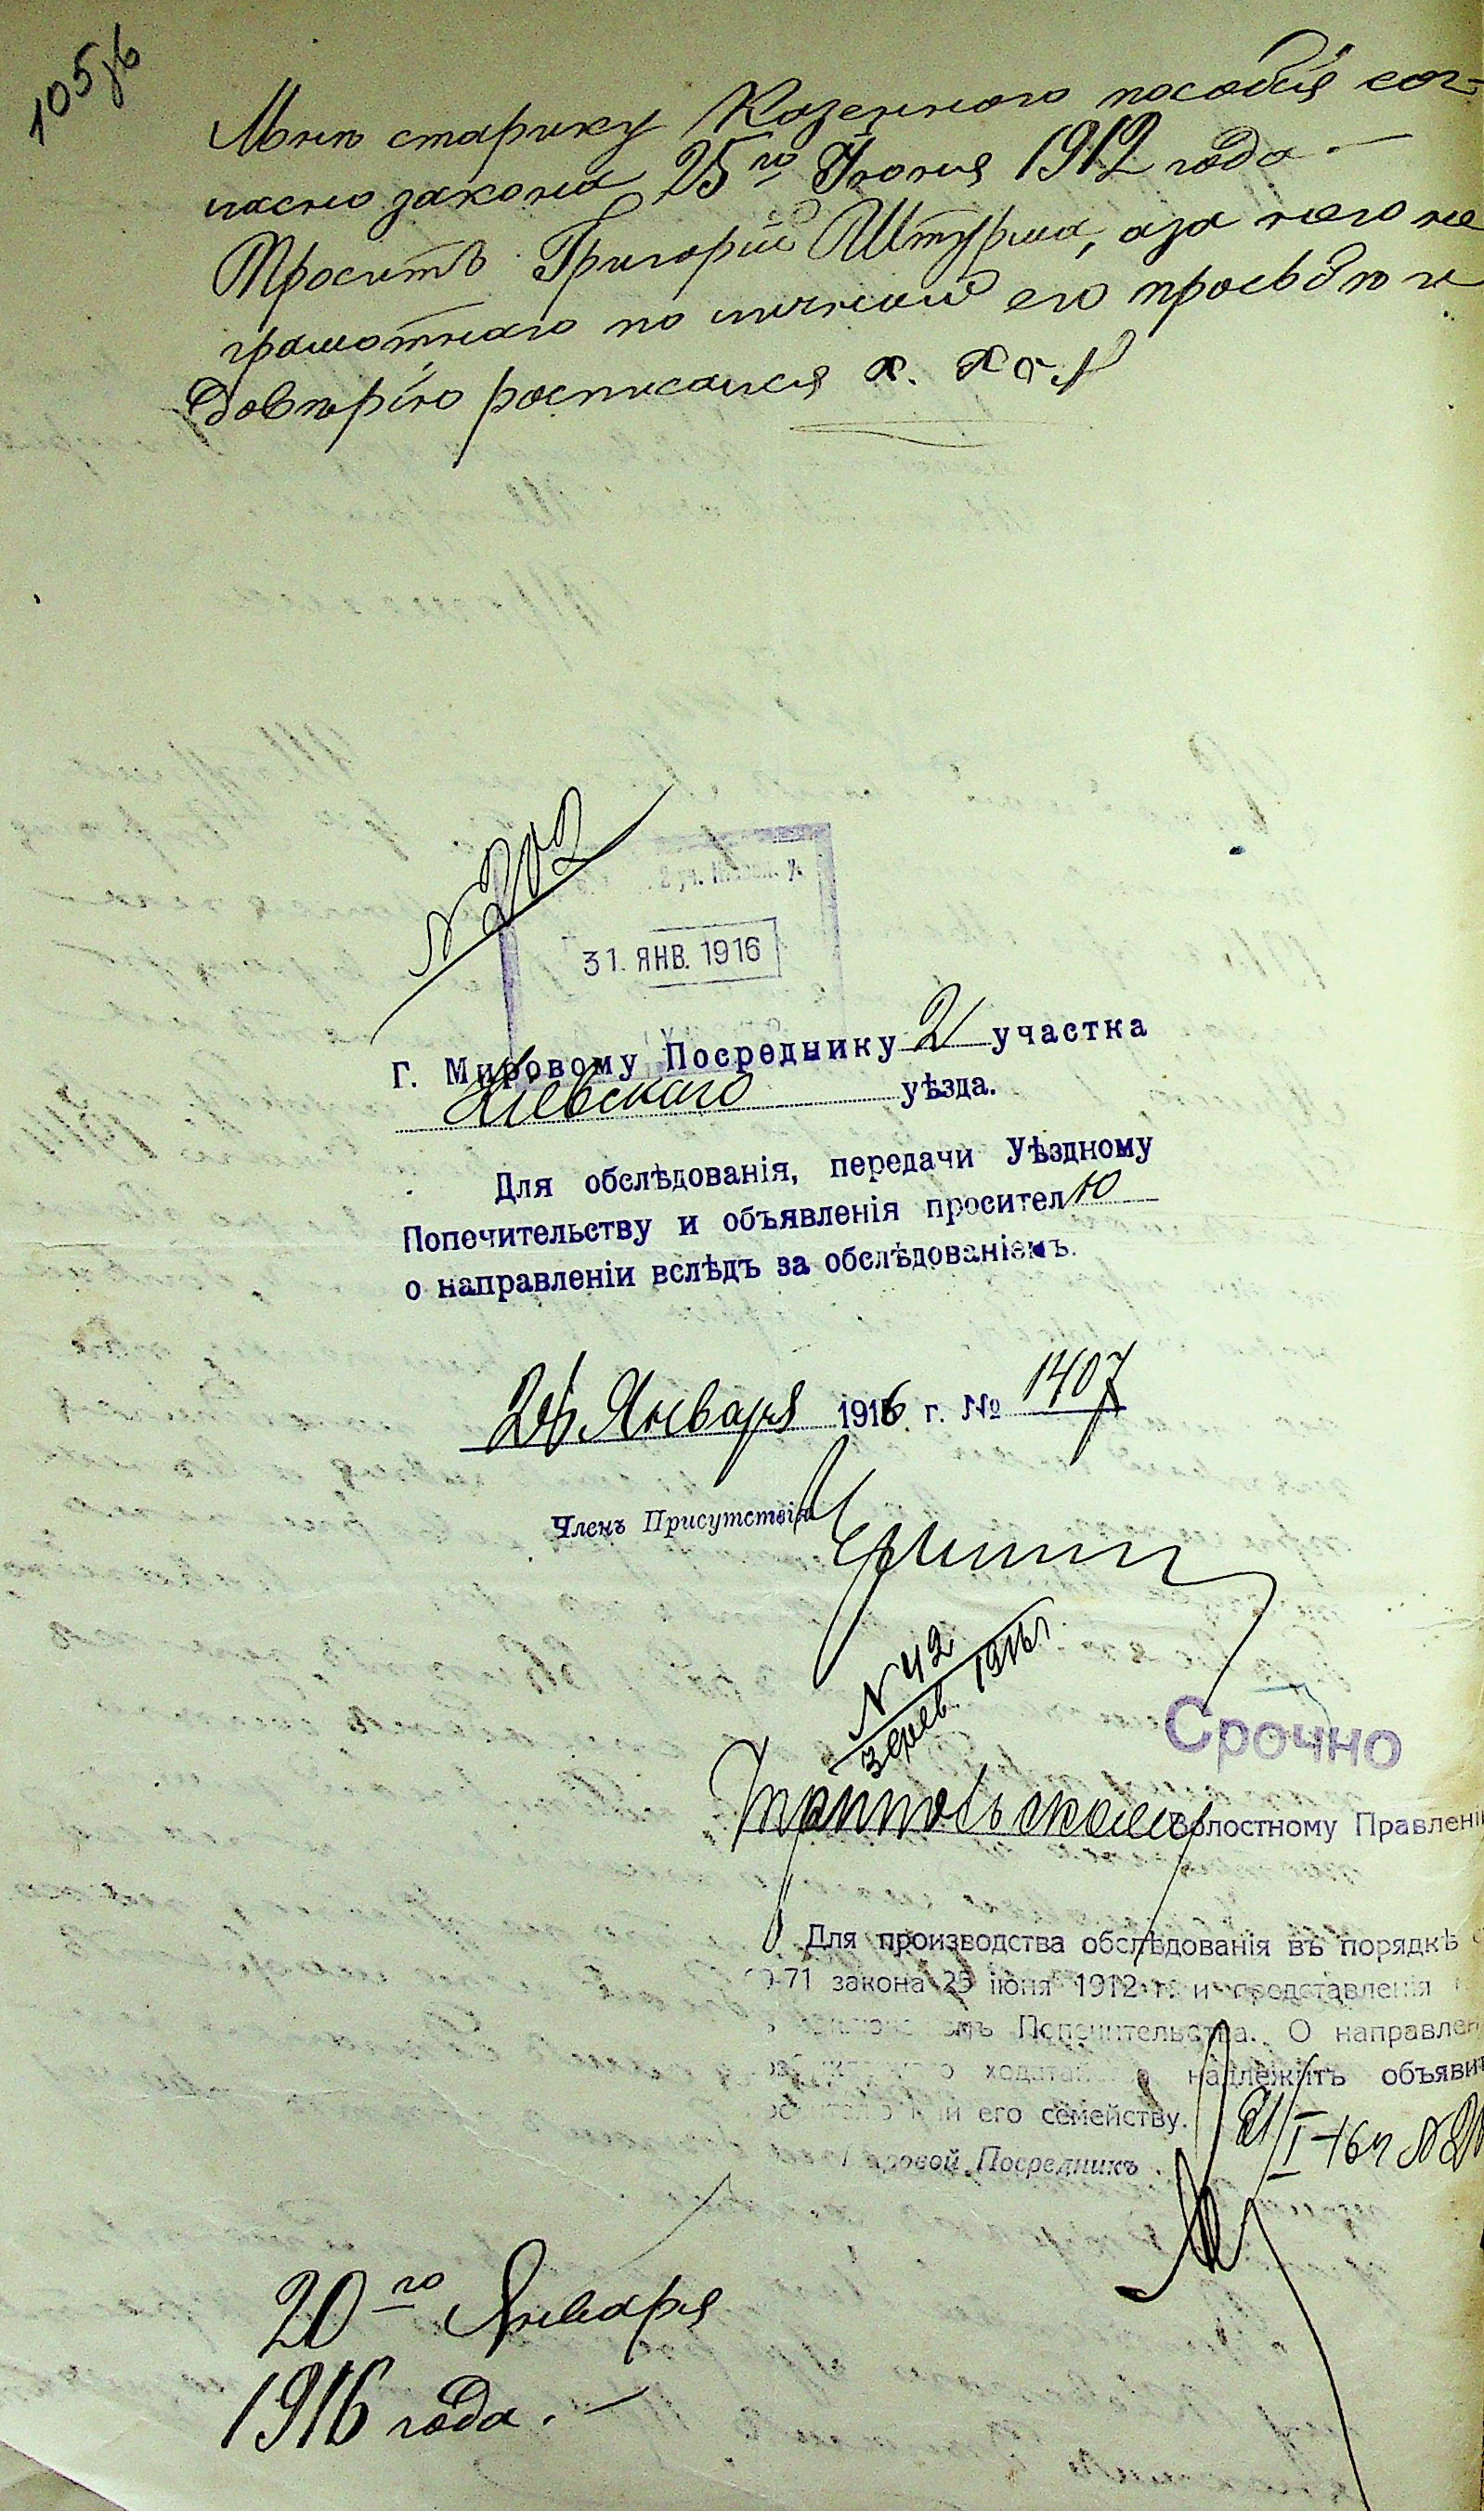 105зв
Мнѣ старику Казеннаго пособія сог-
ласно закона 25го Іюня 1912 года. —
Проситъ Григорій Штурма, а за него не
грамотнаго по личной его просьбѣ и
довѣрію росписался
№ 202
2 уч.
31. ЯНВ. 1916
Г. Мировому Посреднику 2 участка
Кіевскаго уѣзда.
Для обслѣдованія, передачи Уѣздному
Попечительству и объявленія просителю
о направленіи вслѣдъ за обслѣдованіемъ.
26 Января 1916 г. № 1407
Членъ Присутствія
№ 42
3 фев. 1916 г.
Срочно
Трипольскому Волостному Правлені
Для производства обслѣдованія въ порядкѣ
0-71 закона 25 іюня 1912 г. и представленія
Попечительства. О направлен
надлежитъ объявит
его семейству.
31/I-16 г. №
Мировой Посредникъ
20го Января
1916 года. —